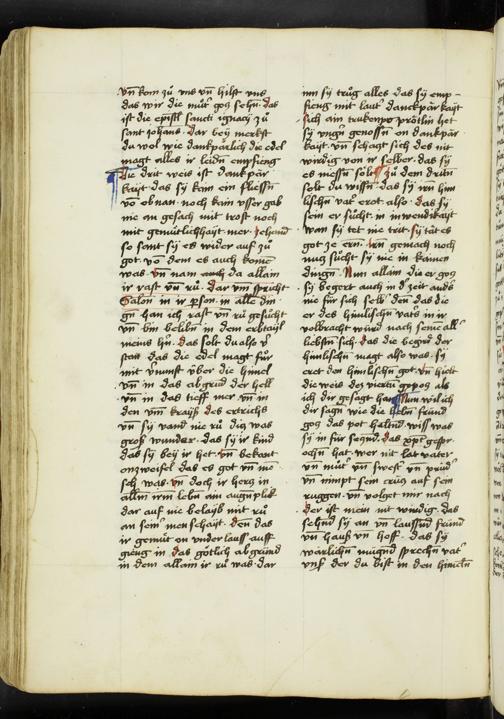 vn̄ kom zů vns vn̄ hilff vns
das wir die můt̄ gotz sehn̄ · das
ist die epistl̄ sancti ignacÿ zů
sant johans · Dar beÿ merkst
du wol wie danckpärlich die edel
magt alles ir leidn̄ empfieng
Die drit weis ist danckpär
kaÿt · das sÿ kain ein fliessn̄
vō ob nan · noch kain vsser gab
nie an gesach mit trost noch
mit gemütlichhaÿt mer · Zehand
so sant sÿ es wider auf zů
got · vō dem es auch komē
was · Vn̄ nam auch da allain
ir rast vn̄ rů · Dar vm̄ spricht
Salon̄ in ir pson̄ · in alle din
gn̄ han ich rast vn̄ rů gesücht
vn̄ bin belibn̄ in dem erbtaÿl
meins hn̄ · das solt du also v̄
stan̄ das die edel magt für
mit v̄nunft v̄ber die himel
vn̄ in das abgrūd der hell
vn̄ in das tieff mer vn̄ in
den vm̄ kraÿß des ertrichs
vn̄ sÿ vand nie rů ditz was
groß wunder · das sÿ ir kind
das sÿ beÿ ir het · vn̄ bekant
onzweifel das es got vn̄ me
sch was · vn̄ doch ir hertz in
allain irm lebn̄ ain augnplik
dar auf nie belaÿb mit rů
an sein̄ menschait · Den das
ir gemüt on vnder lauß auff
gieng in das götlich abgrund
in dem allain ir rů was · dar
inn sÿ trůg alles das sÿ emp-
fieng mit laut̄ danckpärkaÿt
Sich ain trukenpo prötlin het
sÿ vngn̄ genossn̄ on danckpär
kaÿt · vn̄ schatzt sich des nit
wirdig von ir selber · das sÿ
es niessn̄ solt Zu dem dritn̄
solt du wissn̄ · das sÿ irn̄ him
lischn̄ vat̄ erot also · das sÿ
sein er sůcht · in inwendikaÿt
wan sÿ tet nie trit · sÿ tät es
got ze ern̄ · irn̄ gemach noch
nutz sůcht sÿ nie in kainen
dingn̄ · Nun allain die er gotz
sÿ begert auch in d zeit anders
nie für sich selb den das die
er des himlischn̄ vat̄s in ir
volbracht würd nach seinē all
liebstn̄ sich · das die begird der
himlischn̄ magt also was · sÿ
eret den himlischn̄ got · vn̄ hielt
die weis des viertn̄ gepotz als
ich dir gesagt han Nun wil ich
dir sagn̄ wie die heln̄ fründ
gotz das pot haltnd · wiss was
sÿ in für segnd · das xp̄s gespr
ochn̄ hat · wer nit lat vater
vn̄ můt̄ vn̄ swest̄ vn̄ prüd̄
vn̄ nimpt sein crütz auf sein
ruggen · vn̄ volget mir nach
Der ist mein nit wirdig · das
sehnd sÿ an vn̄ laussnd fründ
vn̄ hauß vn̄ hoff · das sÿ
warlichn̄ mügnd sprechn̄ vat̄
vnß der du bist in den himeln̄